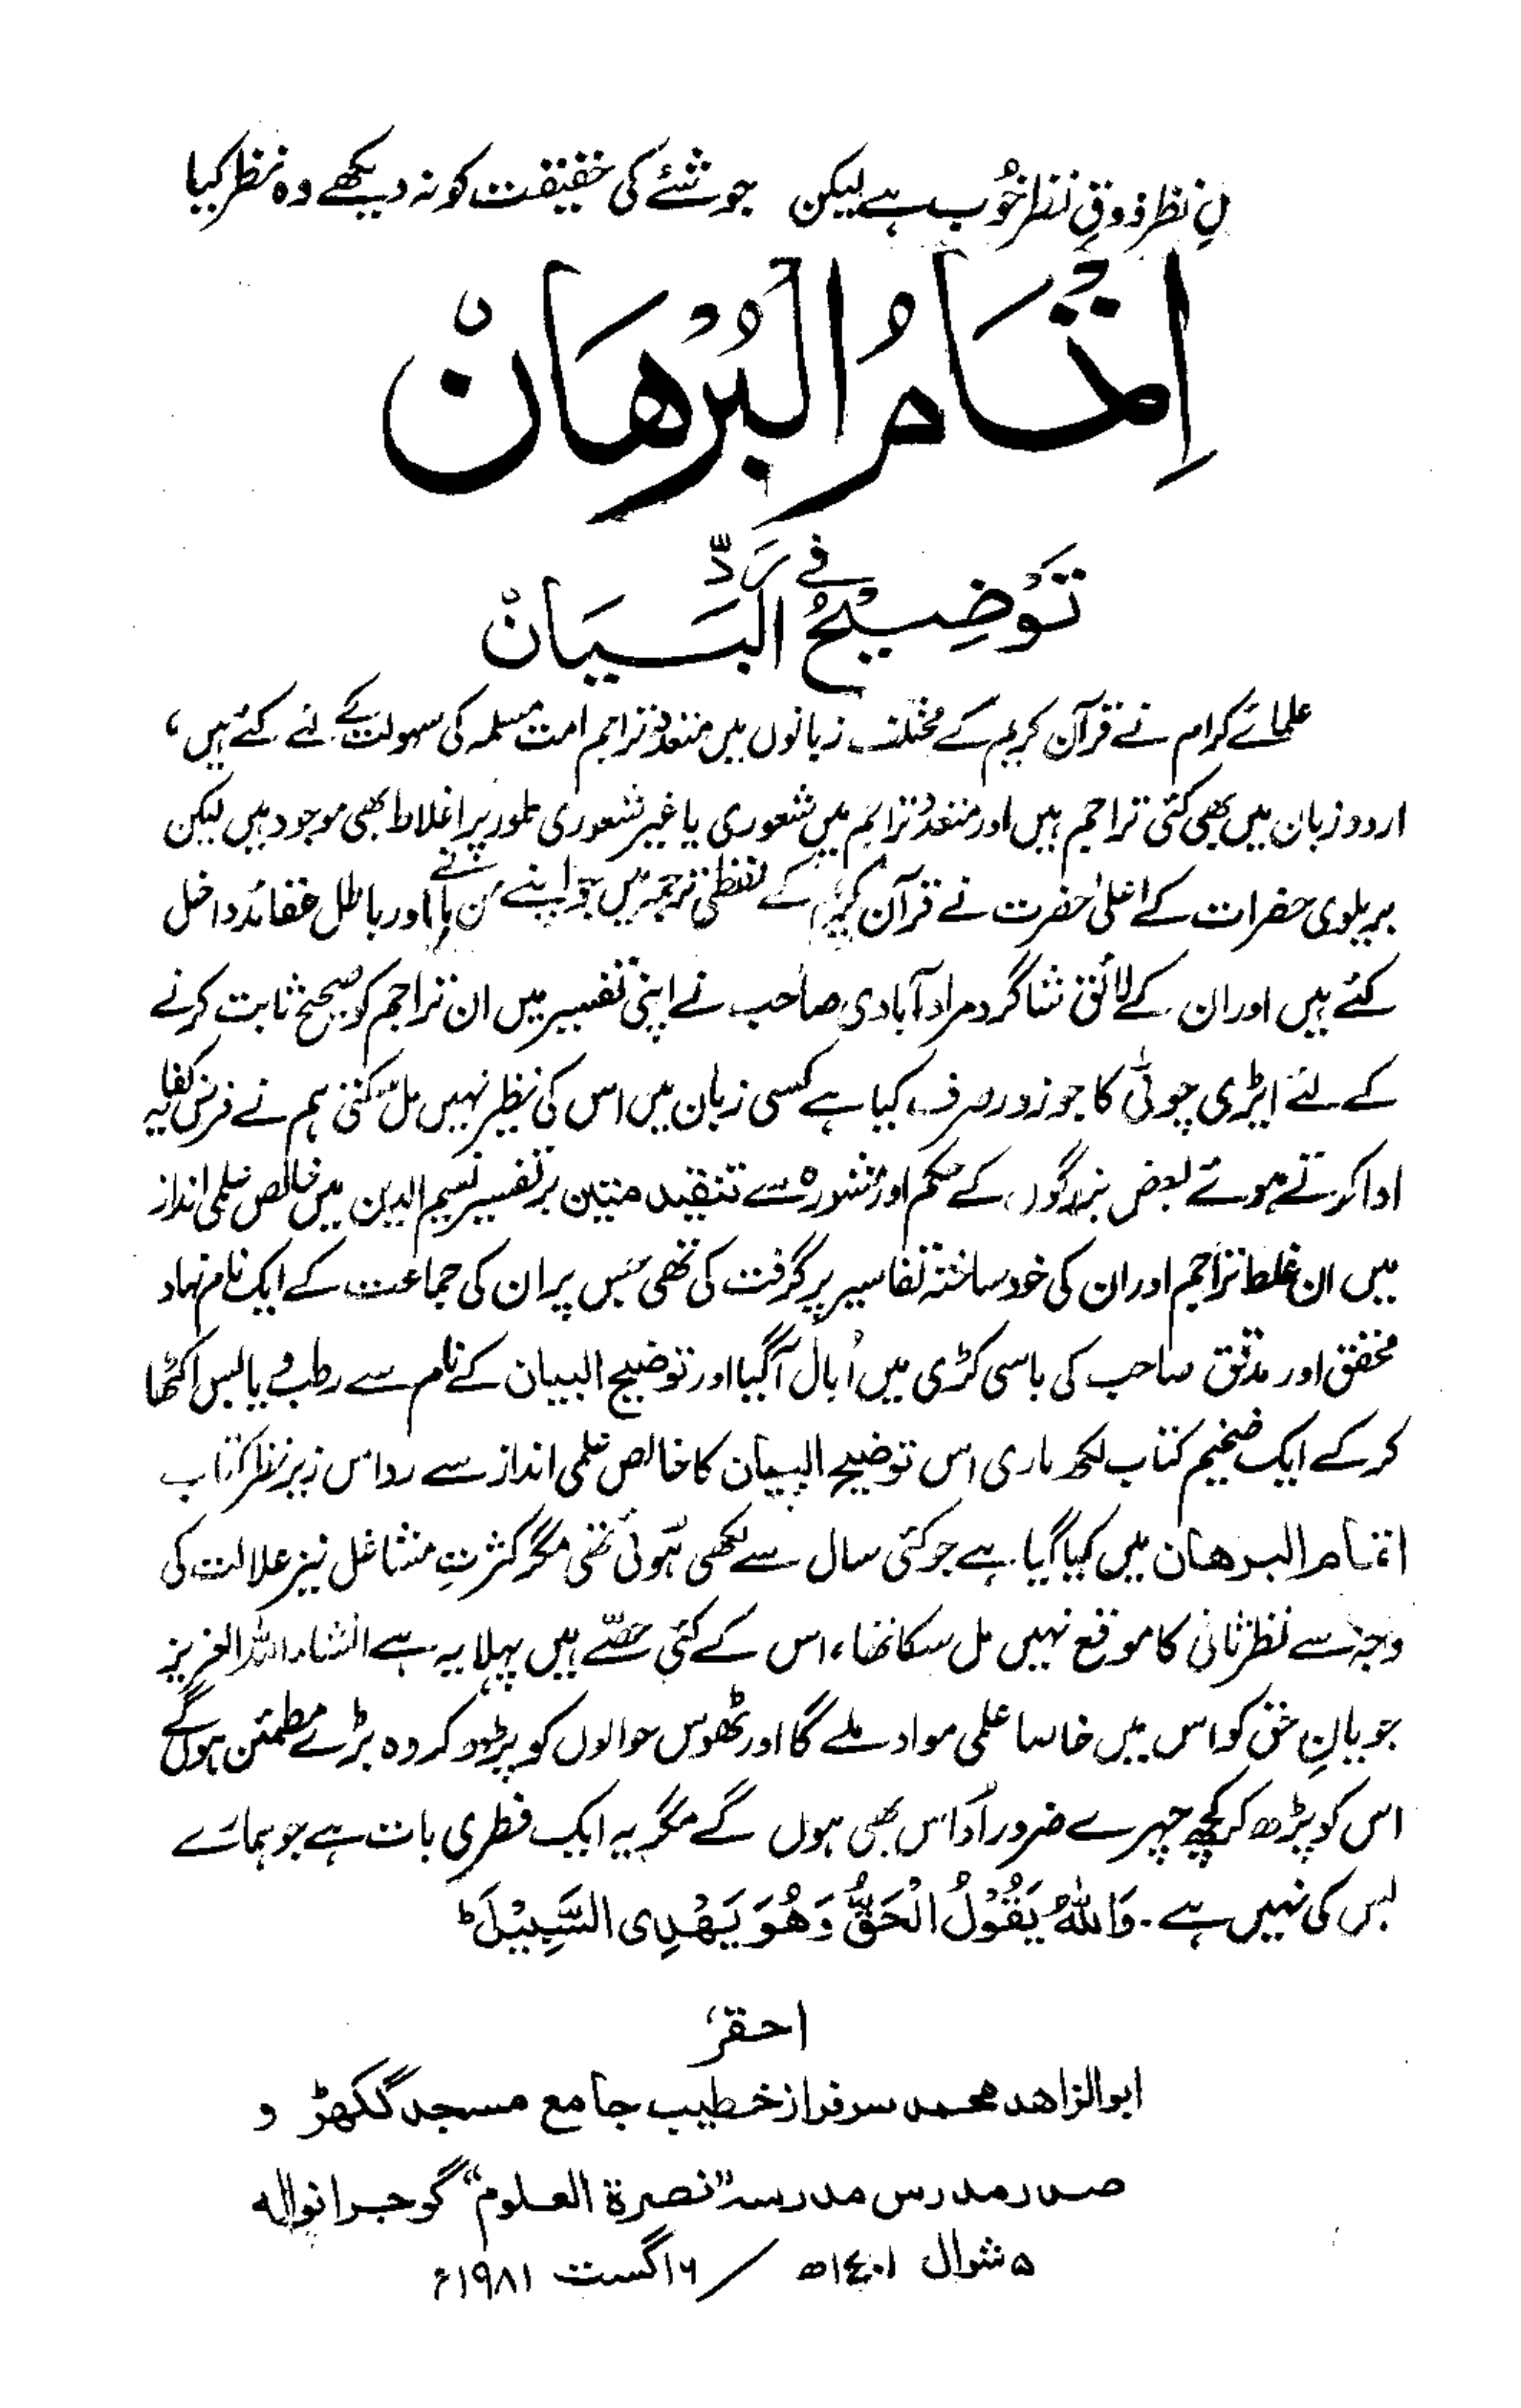 لِ نظر ذوقِ نظر خُوب ہے لیکن جو شئے کی حقیقت کو نہ دیکھے وہ نظر کیا
اِتْمَامُ الْبُرْهَانْ
فِی رَدِّ
تَوْضِیْحُ الْبَیَانْ
علمائے کرام نے قرآن کریم کے مختلف زبانوں میں متعدد تراجم امت مسلمہ کی سہولت کے لئے کئے ہیں،
اردو زبان میں بھی کئی تراجم ہیں اور متعدد تراجم میں شعوری یا غیر شعوری طور پر اغلاط بھی موجود ہیں لیکن
بریلوی حضرات کے اعلیٰ حضرت نے قرآن کریم کے لفظی ترجمہ میں جو اپنے من مانے اور باطل عقائد داخل
کئے ہیں اور ان کے لائق شاگرد مراد آبادی صاحب نے اپنی تفسیر میں ان تراجم کو صحیح ثابت کرنے
کے لئے ایڑی چوٹی کا جو زور صرف کیا ہے کسی زبان میں اس کی نظیر نہیں مل سکتی ہم نے فرض کفایہ
ادا کرتے ہوئے بعض بزرگوں کے حکم اور مشورہ سے تنقید متین بر تفسیر نعیم الدین میں خالص علمی انداز
میں ان غلط تراجم اور ان کی خود ساختہ تفاسیر پر گرفت کی تھی جس پر ان کی جماعت کے ایک نام نہاد
محقق اور مدقق صاحب کی باسی کڑی میں اُبال آگیا اور توضیح البیان کے نام سے رطب و یابس اکٹھا
کر کے ایک ضخیم کتاب لکھ ماری اس توضیح البیان کا خالص علمی انداز سے رد اس زیر نظر کتاب
اتمام البرهان میں کیا گیا ہے جو کئی سال سے لکھی ہوئی تھی مگر کثرتِ مشاغل نیز علالت کی
وجہ سے نظر ثانی کا موقع نہیں مل سکا تھا، اس کے کئی حصّے ہیں پہلا یہ ہے انشاء اللہ العزیز
جویانِ حق کو اس میں خاصا علمی مواد ملے گا اور ٹھوس حوالوں کو پڑھ کر وہ بڑے مطمئن ہوں گے
اس کو پڑھ کر کچھ چہرے ضرور اُداس بھی ہوں گے مگر یہ ایک فطری بات ہے جو ہمارے
بس کی نہیں ہے۔ وَاللهُ يَقُوْلُ الْحَقَّ وَهُوَ يَهْدِی السَّبِيْلَ ط
احقر،
ابوالزاهد محمد سرفراز خطیب جامع مسجد گکھڑ و
صدر مدرس مدرسہ "نصرة العلوم" گوجرانوالہ
۵ شوال ۱٤۰۱ھ / ۶ اگست ۱۹۸۱ء